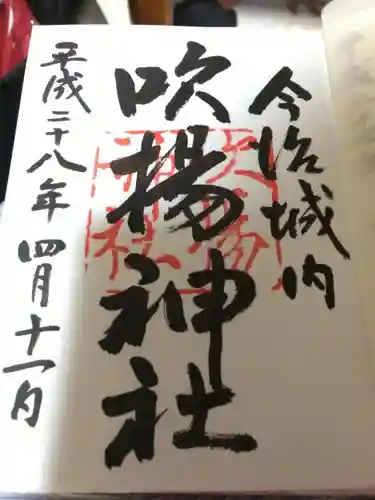 今治城内
吹揚神社
平成二十八年四月十一日